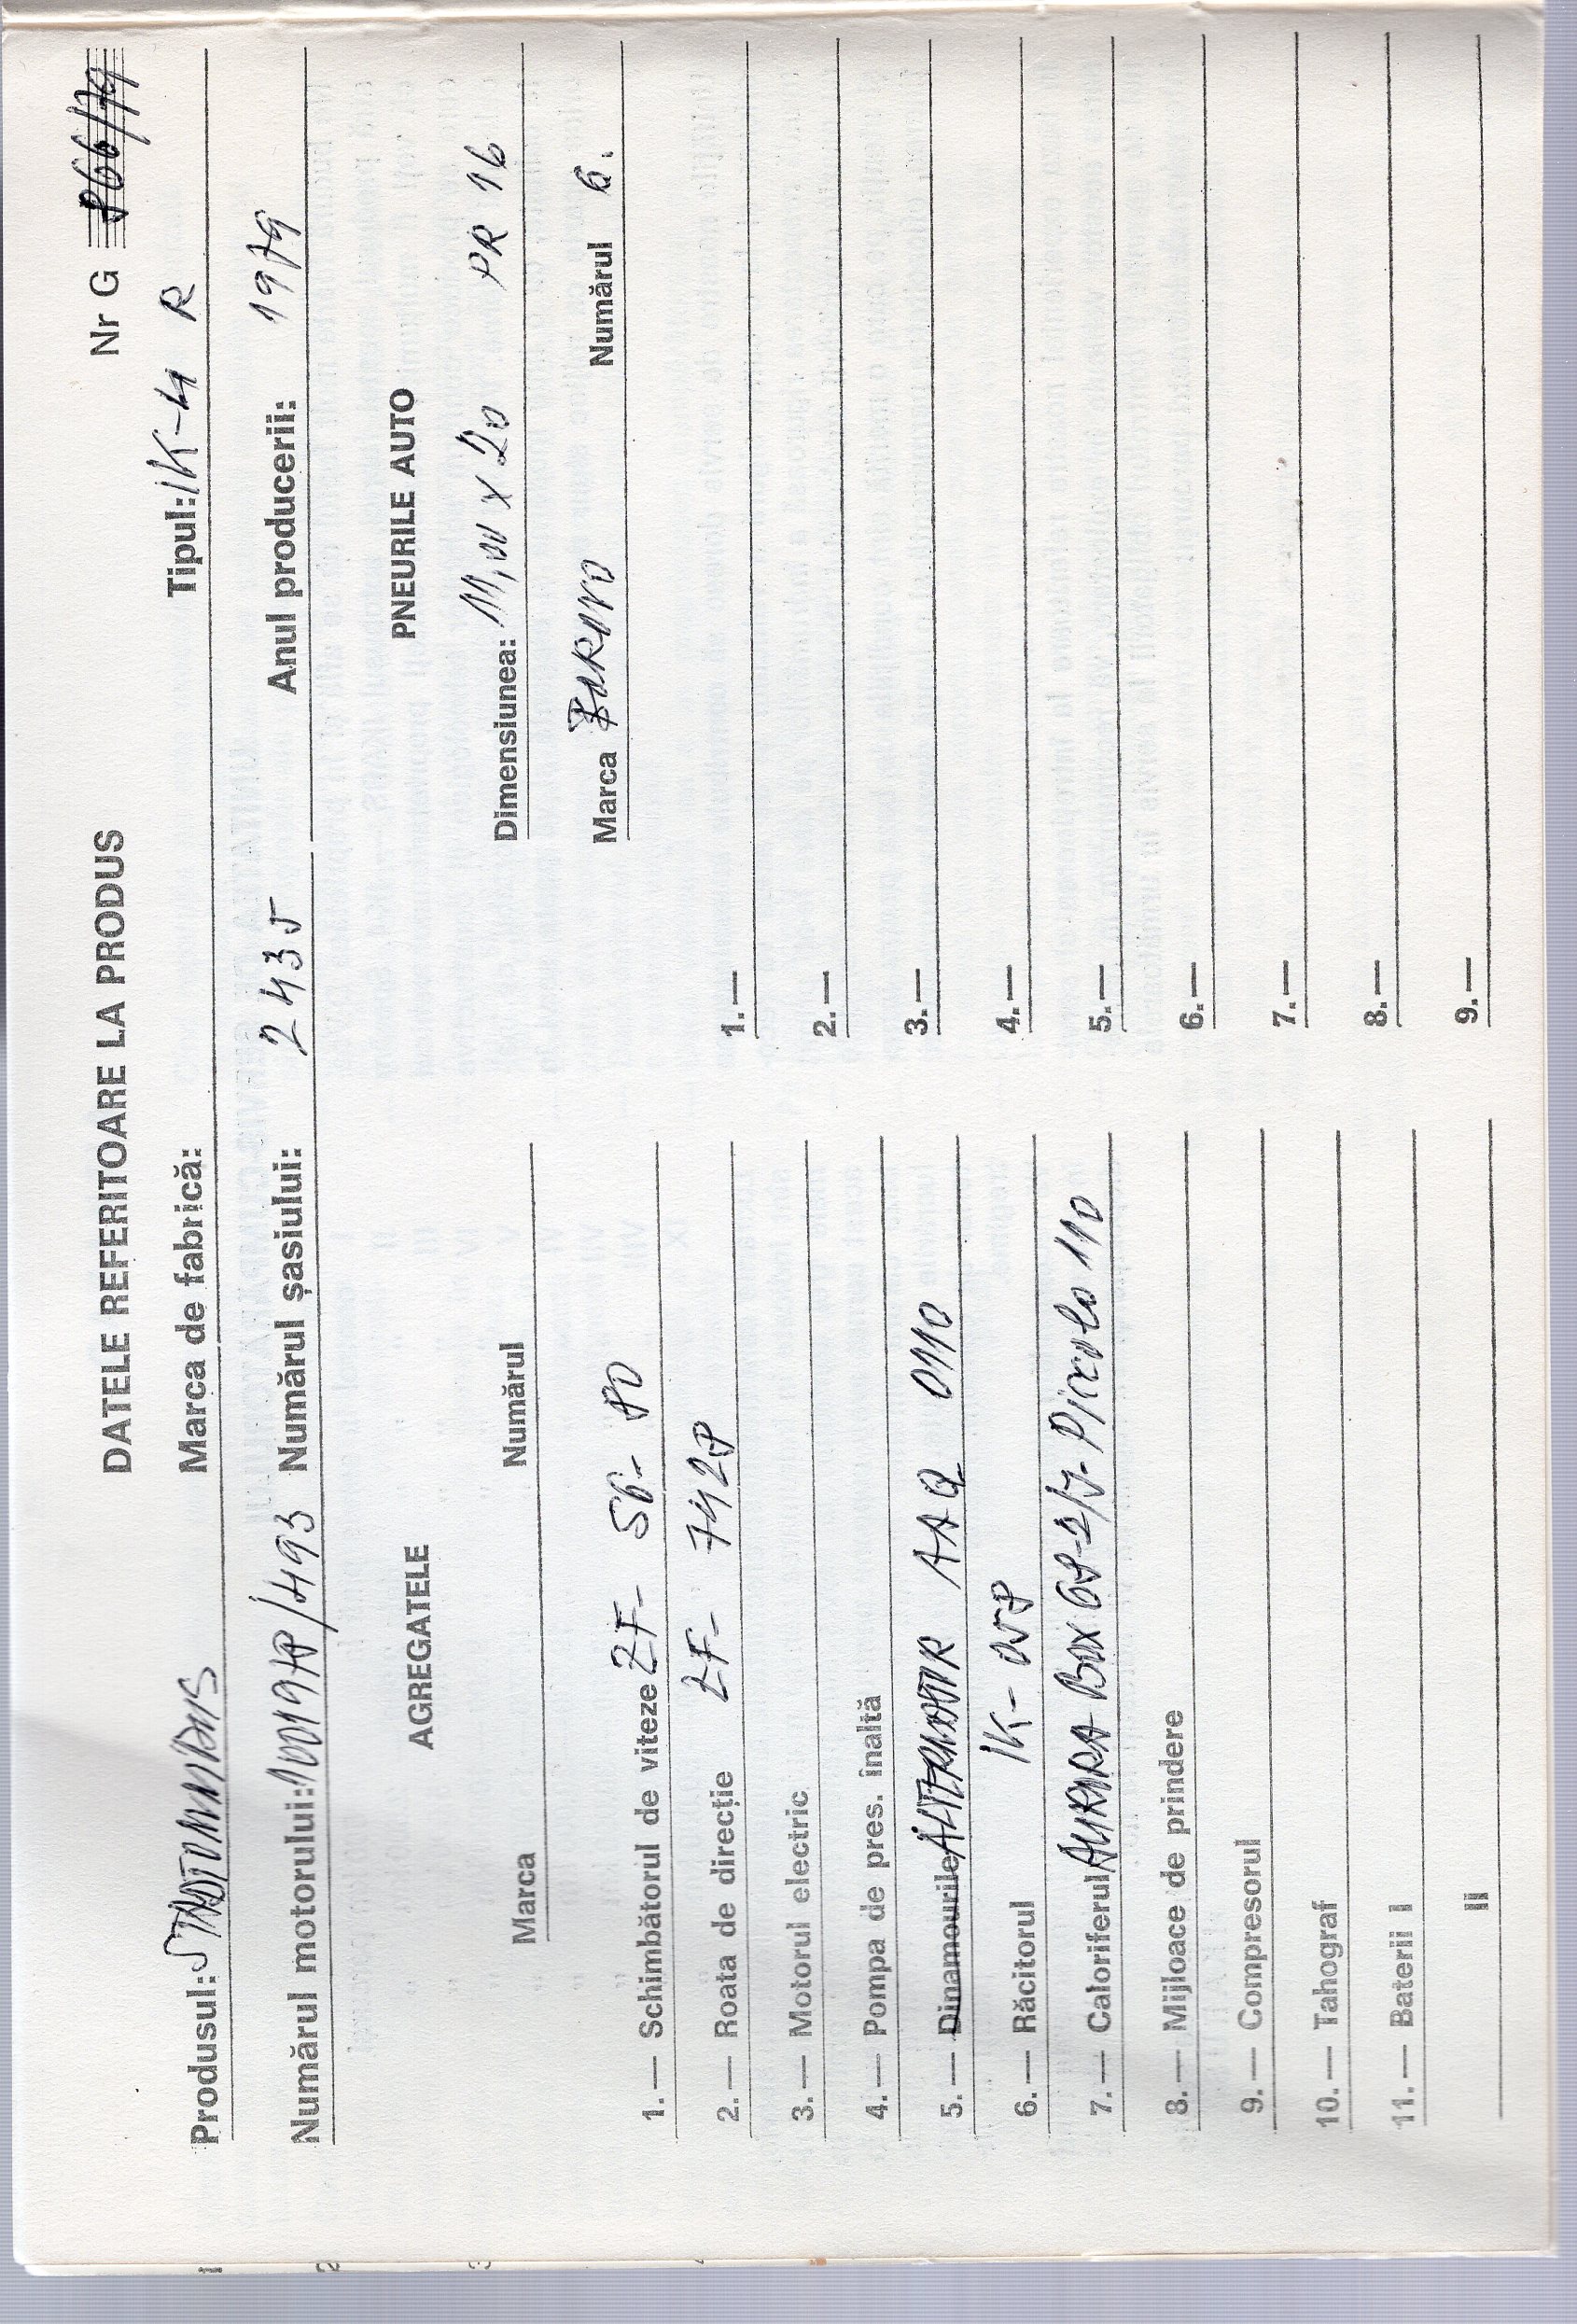 DATELE REFERITOARE LA PRODUS
Nr G 866/79
Produsul: Marca de fabrică: Tipul: IK-4 R
Numărul motorului: Numărul șasiului: 2435 Anul producerii: 1979
AGREGATELE
PNEURILE AUTO
Marca Numărul
Dimensiunea: 11,00 x 20 PR 16
Marca Numărul 6.
1.— Schimbătorul de viteze ZF- S6- 80
2.— Roata de direcție ZF- 7428
3.— Motorul electric
4.— Pompa de pres. înaltă
5.— Dinamourile ALTERNATOR AAQ 0110
6.— Răcitorul
7.— Caloriferul AURORA Box
8.— Mijloace de prindere
9.— Compresorul
10.— Tahograf
11.— Baterii I
II
1.—
2.—
3.—
4.—
5.—
6.—
7.—
8.—
9.—